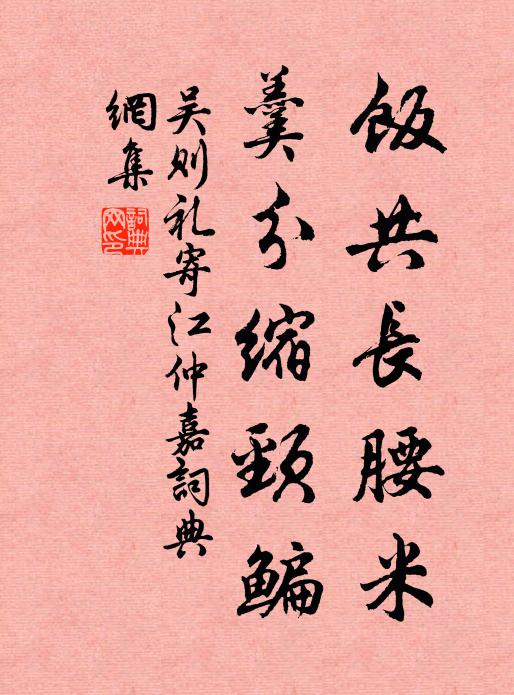 飯共長腰米
羹分縮頸鯿
吴则礼寄江仲嘉詞典
網集
詞典
网印